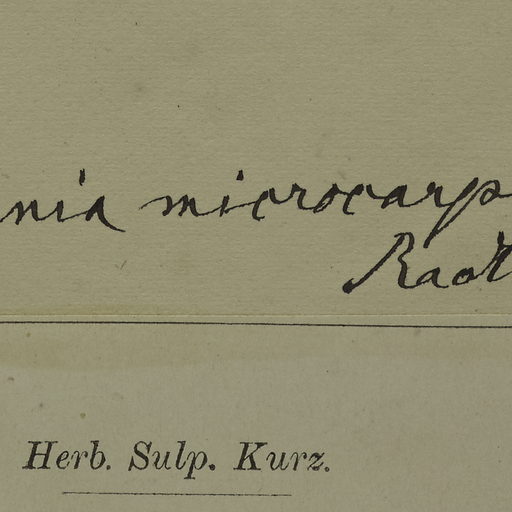 nia microcarp
Herb. Sulp. Kurz.